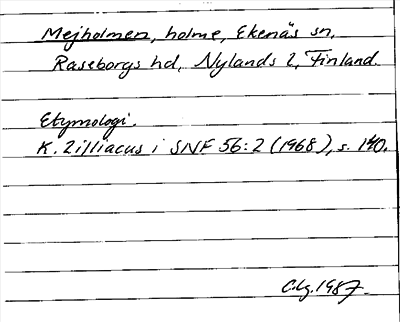 Mejholmen, holme, Ekenäs sn,
Raseborgs hd, Nylands l, Finland.
Etymologi.
K. Zilliacus i SNF 56:2 (1968), s. 140.
C.lg. 1987.